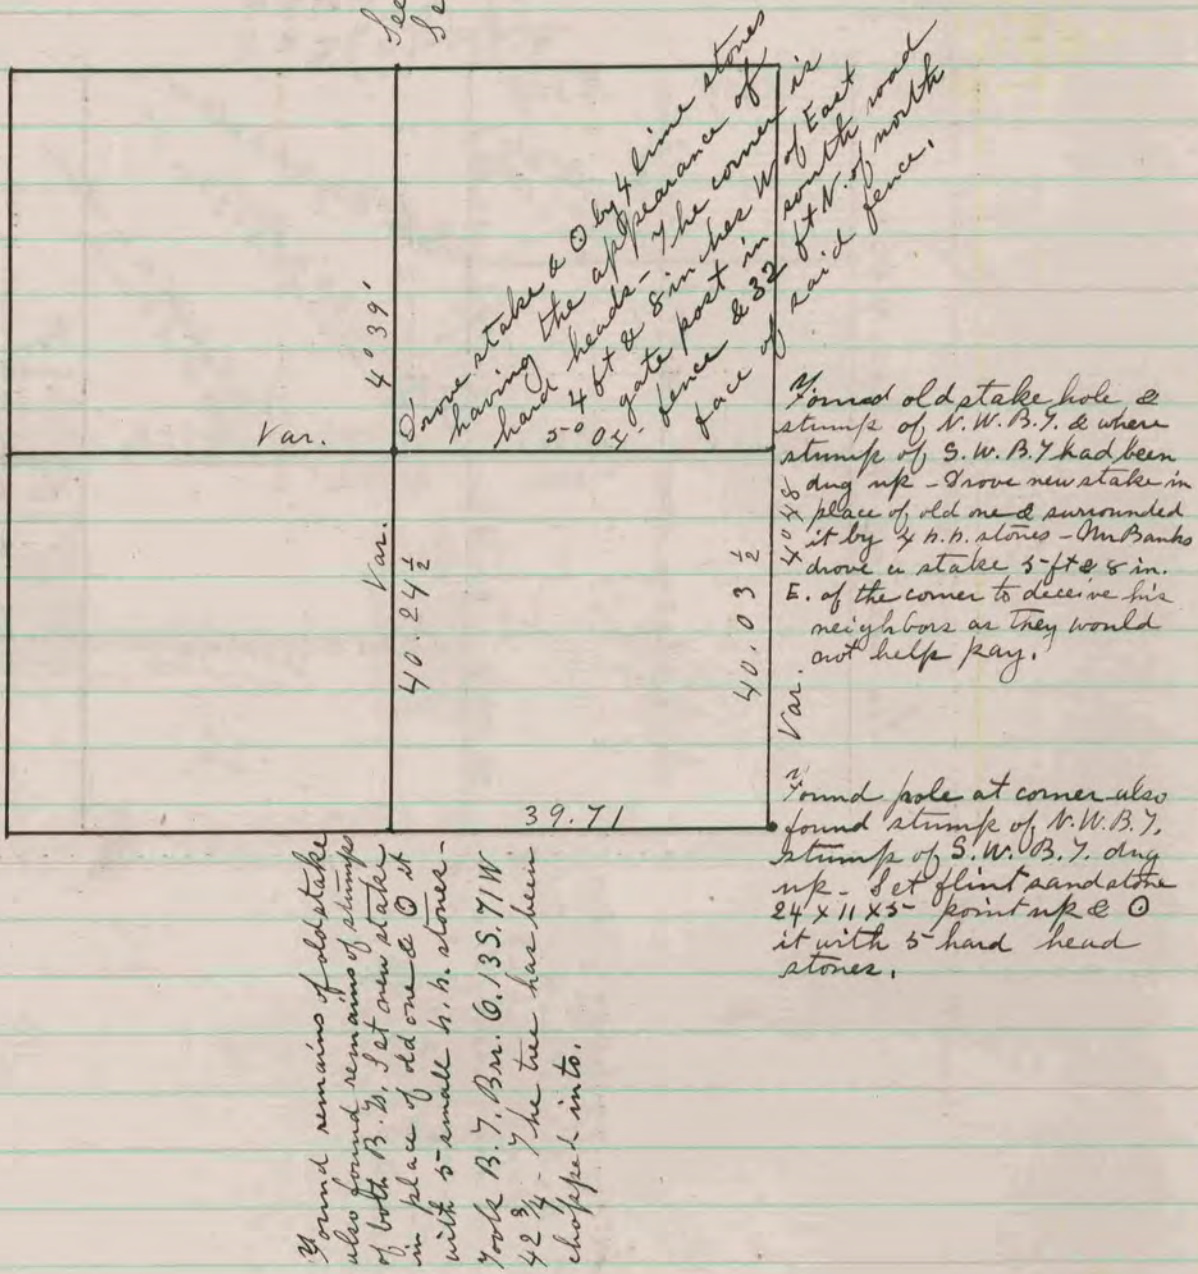 See
Se
Drove stake & ʘ by 4 lime stones
having the appearance of
hard heads - The corner is
4 ft & 8 inches W of East
gate post in south road
fence & 32 ft N. of north
face of said fence.
4° 39'
Var.
5° 04'
Var.
40.24 ½
40.03 ½
4° 48
Var.
39.71
Found old stake hole &
stump of N.W.B.T. & where
stump of S.W.B.T had been
dug up - Drove new stake in
place of old one & surrounded
it by 4 h.h. stones - Mr Banks
drove a stake 5 ft & 8 in.
E. of the corner to deceive his
neighbors as they would
not help pay.
Found pole at corner also
found stump of N.W.B.T.
stump of S.W.B.T. dug
up - Set flint sandstone
24 x 11 x 5 point up & ʘ
it with 5 hard head
stones.
Found remains of old stake
also found remains of stumps
of both B.Ts. Set new stake
in place of old one & ʘ it
with 5 small h.h. stones -
Took B.T. Bur. O. 13 S. 71 W
42 ¾ - The tree has been
chopped into.